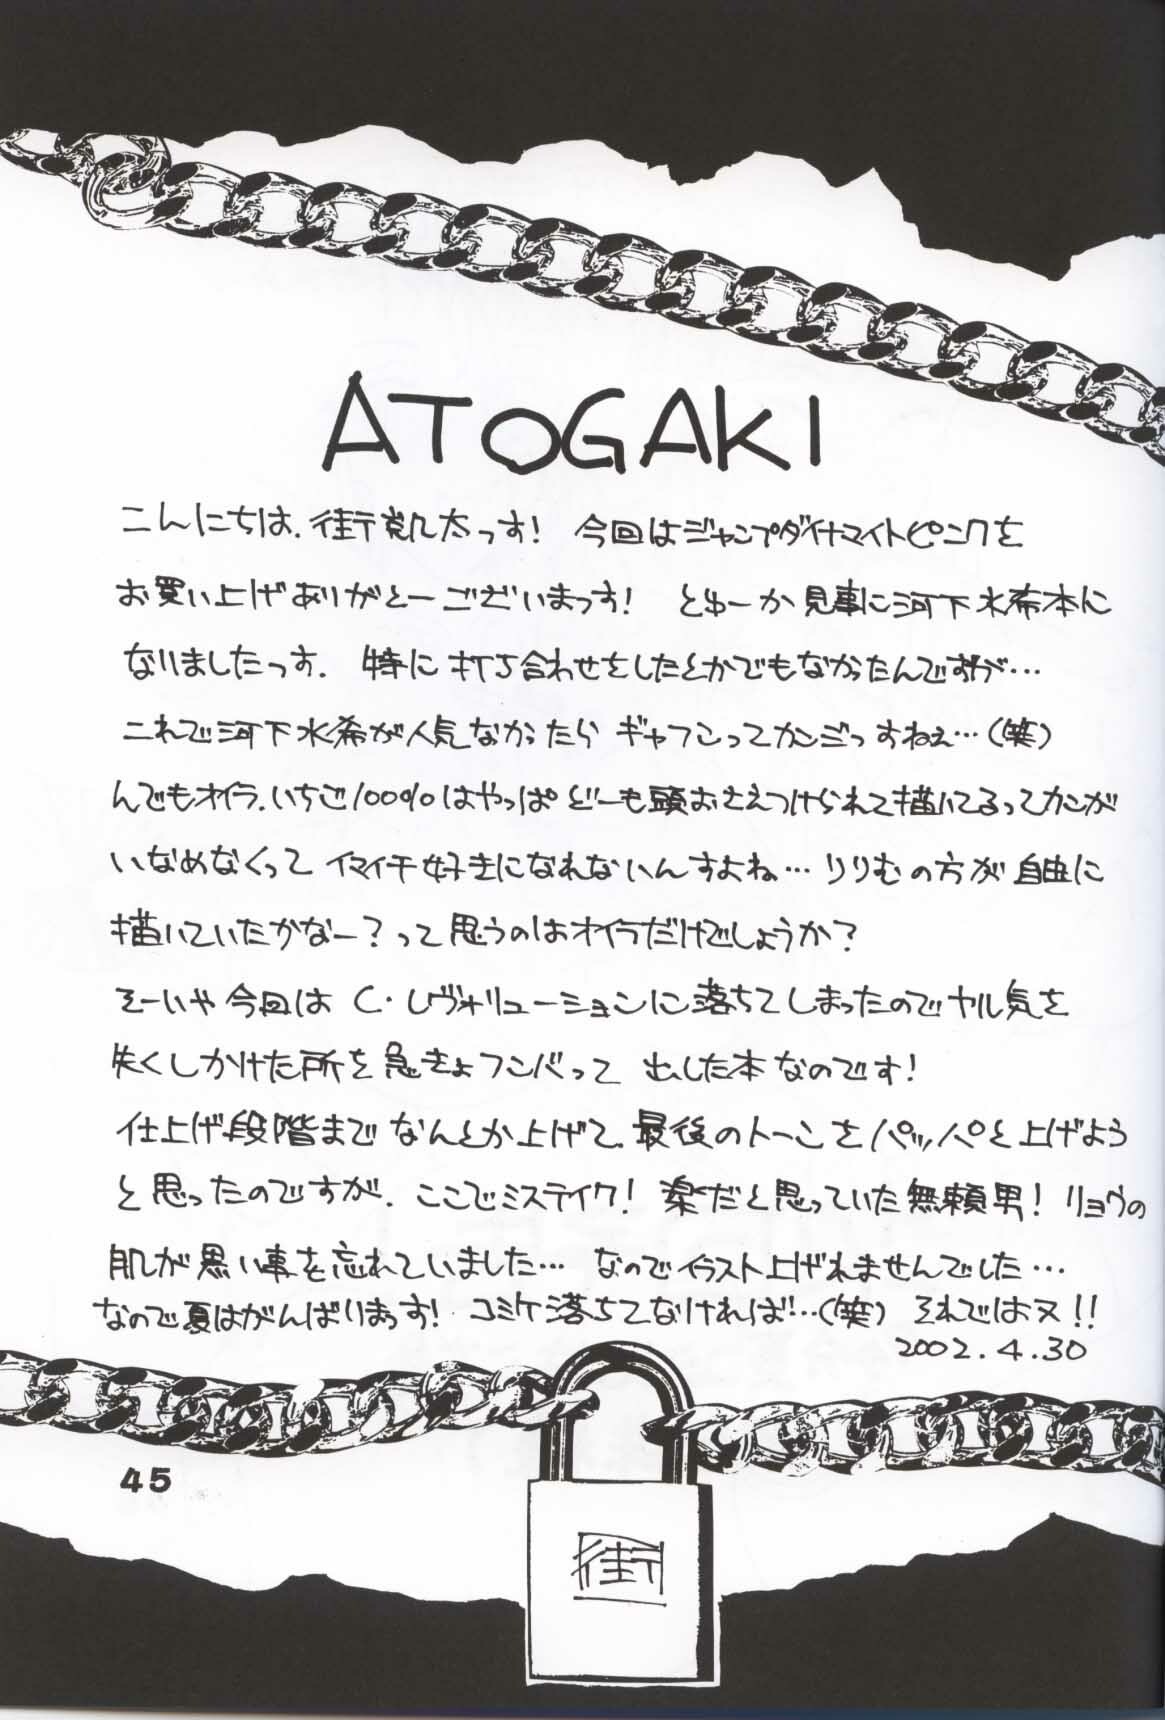 ATOGAKI
こんにちは、街凱太っす! 今回はジャンプダイナマイトピンクを
お買い上げありがとーございまっす! とゆーか見事に河下水希本に
なりましたっす. 特に打ち合わせをしたとかでもなかったんですが…
これで河下水希が人気なかったらギャフンってカンジっすねぇ…(笑)
んでもオイラ、いちご100%はやっぱどーも頭おさえつけられて描いてるってカンが
いなめなくってイマイチ好きになれないんすよね… りりむの方が自由に
描いていたかなー?って思うのはオイラだけでしょうか?
そーいや今回はC・レヴォリューションに落ちてしまったのでヤル気を
失くしかけた所を急きょフンバって出した本なのです!
仕上げ段階までなんとか上げて、最後のトーンをパッパと上げよう
と思ったのですが、ここでミステイク! 楽だと思っていた無頼男! リョウの
肌が黒い事を忘れていました… なのでイラスト上げれませんでした…
なので夏はがんばりまっす! コミケ落ちてなければ!…(笑) それではヌ!!
2002.4.30
45
街